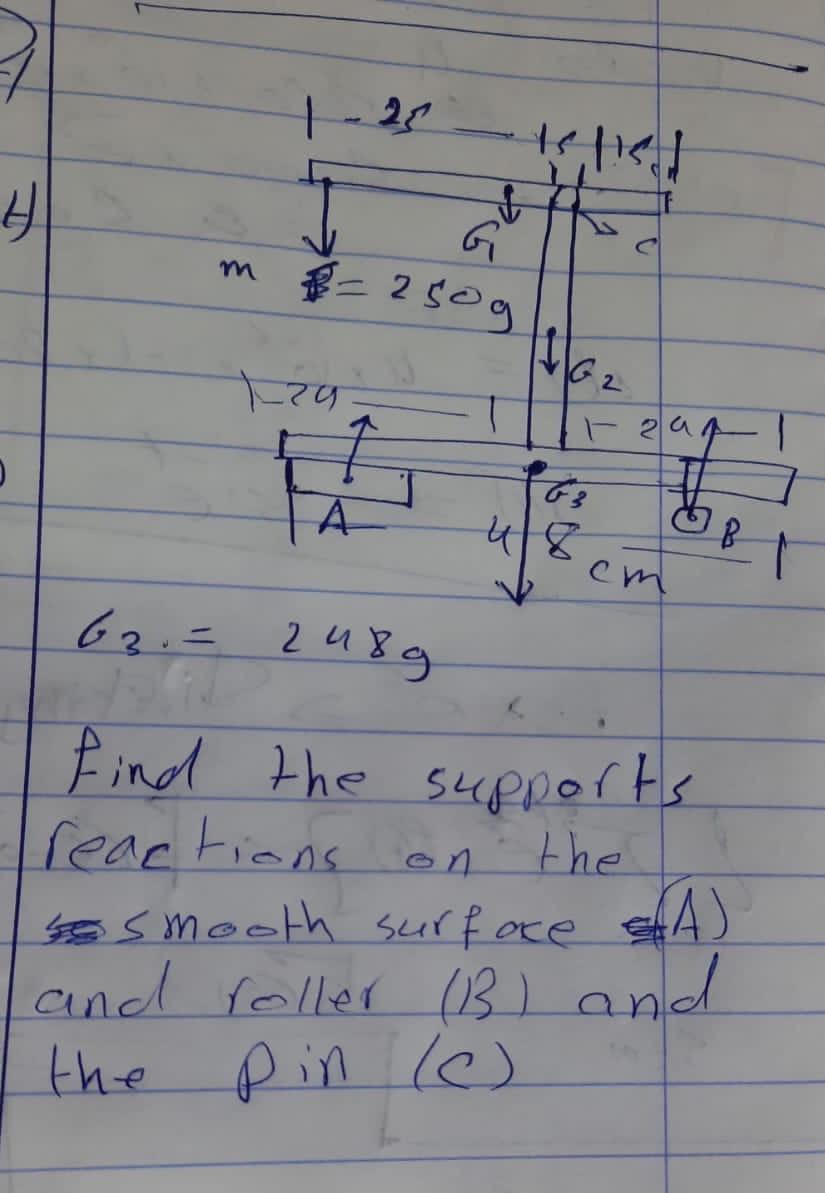 25
G1
C
m = 250g
G2
24
24
A
G3
B
48
cm
G3 = 248g
find the supports
reactions on the
smooth surface (A)
and roller (B) and
the pin (C)